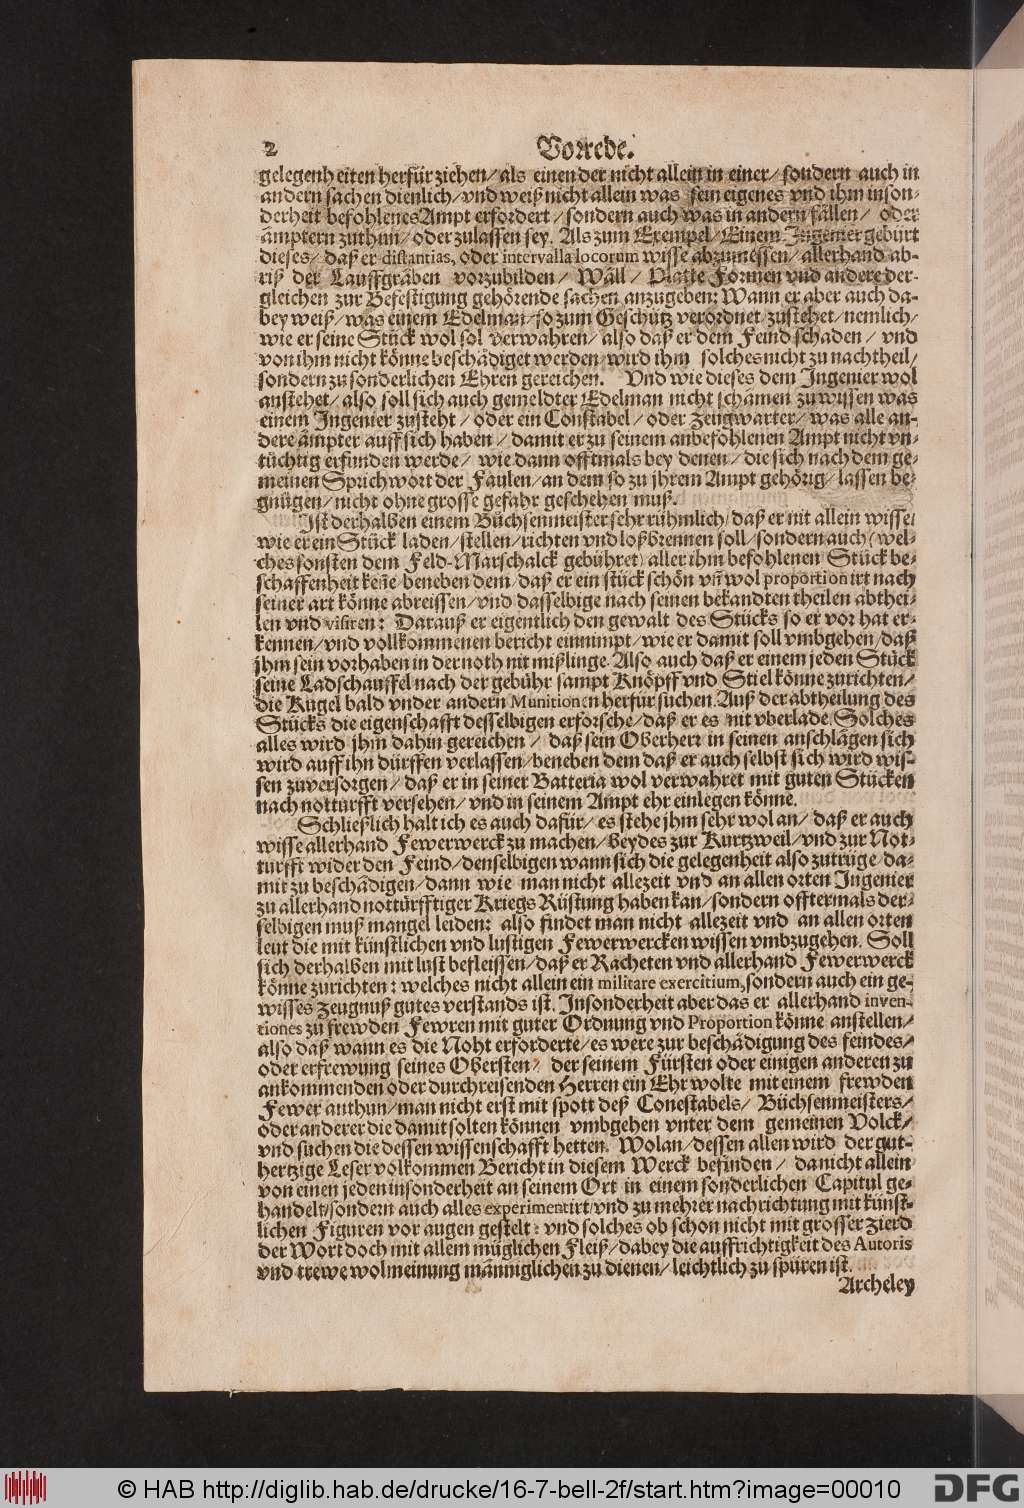 2 Vorrede.
gelegenheiten herfür ziehen/ als einen der nicht allein in einer/ sondern auch in
andern sachen dienlich/ vnd weiß nicht allein was sein eigenes vnd ihm inson-
derheit befohlenes Ampt erfordert/ sondern auch was in andern fällen/ oder
ämptern zuthun/ oder zulassen sey. Als zum Exempel/ Einem Ingenier gebürt
dieses/ daß er distantias, oder intervalla locorum wisse abzumessen/ allerhand ab-
riß der Lauffgräben vorzubilden/ Wäll/ Platte Formen vnd andere der-
gleichen zur Befestigung gehörende sachen anzugeben: Wann er aber auch da-
bey weiß/ was einem Edelman/ so zum Geschütz verordnet/ zustehet/ nemlich/
wie er seine Stück wol sol verwahren/ also daß er dem Feind schaden/ vnd
von ihm nicht könne beschädiget werden/ wird ihm solches nicht zu nachtheil/
sondern zu sonderlichen Ehren gereichen. Vnd wie dieses dem Ingenier wol
anstehet/ also soll sich auch gemeldter Edelman nicht schämen zu wissen was
einem Ingenier zusteht/ oder ein Constabel/ oder Zeugwarter/ was alle an-
dere ämpter auff sich haben/ damit er zu seinem anbefohlenen Ampt nicht vn-
tüchtig erfunden werde/ wie dann offtmals bey denen/ die sich nach dem ge-
meinen Sprichwort der Faulen/ an dem so zu jhrem Ampt gehörig/ lassen be-
gnügen/ nicht ohne grosse gefahr geschehen muß.
Ist derhalben einem Büchsenmeister sehr rühmlich/ daß er nit allein wisse/
wie er ein Stück laden/ stellen/ richten vnd loßbrennen soll/ sondern auch (wel-
ches sonsten dem Feld-Marschalck gebühret) aller ihm befohlenen Stück be-
schaffenheit keñe/ beneben dem/ daß er ein stück schön vñ wol proportionirt nach
seiner art könne abreissen/ vnd dasselbige nach seinen bekandten theilen abthei-
len vnd visiren: Darauß er eigentlich den gewalt des Stücks so er vor hat er-
kennen/ vnd vollkommenen bericht einnimpt/ wie er damit soll vmbgehen/ daß
jhm sein vorhaben in der noth nit mißlinge. Also auch daß er einem jeden Stück
seine Ladschauffel nach der gebühr sampt Knöpff vnd Stiel könne zurichten/
die Kugel bald vnder andern Munitionen herfür suchen. Auß der abtheilung des
Stücks die eigenschafft desselbigen erforsche/ daß er es nit vberlade. Solches
alles wird jhm dahin gereichen/ daß sein Oberherr in seinen anschlägen sich
wird auff ihn dürffen verlassen/ beneben dem daß er auch selbst sich wird wis-
sen zuversorgen/ daß er in seiner Batteria wol verwahret mit guten Stücken
nach notturfft versehen/ vnd in seinem Ampt ehr einlegen könne.
Schließlich halt ich es auch dafür/ es stehe jhm sehr wol an/ daß er auch
wisse allerhand Fewerwerck zu machen/ beydes zur Kurtzweil/ vnd zur Not-
turfft wider den Feind/ denselbigen wann sich die gelegenheit also zutrüge/ da-
mit zu beschädigen/ dann wie man nicht allezeit vnd an allen orten Ingenier
zu allerhand notturfftiger Kriegs Rüstung haben kan/ sondern offtermals der-
selbigen muß mangel leiden: also findet man nicht allezeit vnd an allen orten
leut die mit künstlichen vnd lustigen Fewerwercken wissen vmbzugehen. Soll
sich derhalben mit lust befleissen/ daß er Racheten vnd allerhand Fewerwerck
könne zurichten: welches nicht allein ein militare exercitium, sondern auch ein ge-
wisses Zeugnuß gutes verstands ist. Insonderheit aber das er allerhand inven-
tiones zu frewden Fewren mit guter Ordnung vnd Proportion könne anstellen/
also daß wann es die Noht erforderte/ es were zur beschädigung des feindes/
oder erfrewung seines Obersten/ der seinem Fürsten oder einigen anderen zu
ankommenden oder durchreisenden Herren ein Ehr wolte mit einem frewden
Fewer anthun/ man nicht erst mit spott deß Conestabels/ Büchsenmeisters/
oder anderer die damit solten können vmbgehen vnter dem gemeinen Volck/
vnd suchen die dessen wissenschafft hetten. Wolan/ dessen allen wird der gut-
hertzige Leser volkommen Bericht in diesem Werck befinden/ da nicht allein
von einen jeden insonderheit an seinem Ort in einem sonderlichen Capitul ge-
handelt/ sondern auch alles experimentirt/ vnd zu mehrer nachrichtung mit künst-
lichen Figuren vor augen gestelt: vnd solches ob schon nicht mit grosser zierd
der Wort doch mit allem müglichen Fleiß/ dabey die auffrichtigkeit des Autoris
vnd trewe wolmeinung männiglichen zu dienen/ leichtlich zu spüren ist.
Archeley
© HAB http://diglib.hab.de/drucke/16-7-bell-2f/start.htm?image=00010
DFG